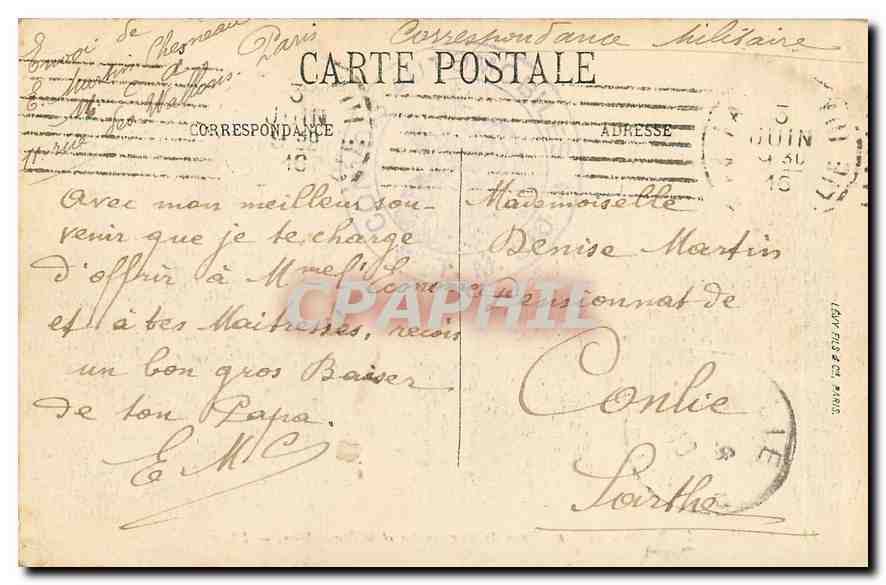 Envoi de
E. Martin Chesneau
11 rue des Wallons. Paris
Correspondance Militaire
CARTE POSTALE
CORRESPONDANCE
ADRESSE
5
JUIN
9 30
5
JUIN
9 30
Avec mon meilleur sou-
venir que je te charge
d'offrir à
et à tes Maitresses, reçois
un bon gros Baiser
de ton Papa.
E M C
Mademoiselle
Denise Martin
Pensionnat de
Conlie
Sarthe
LÉVY FILS & Cie, PARIS.
CPAPHIL